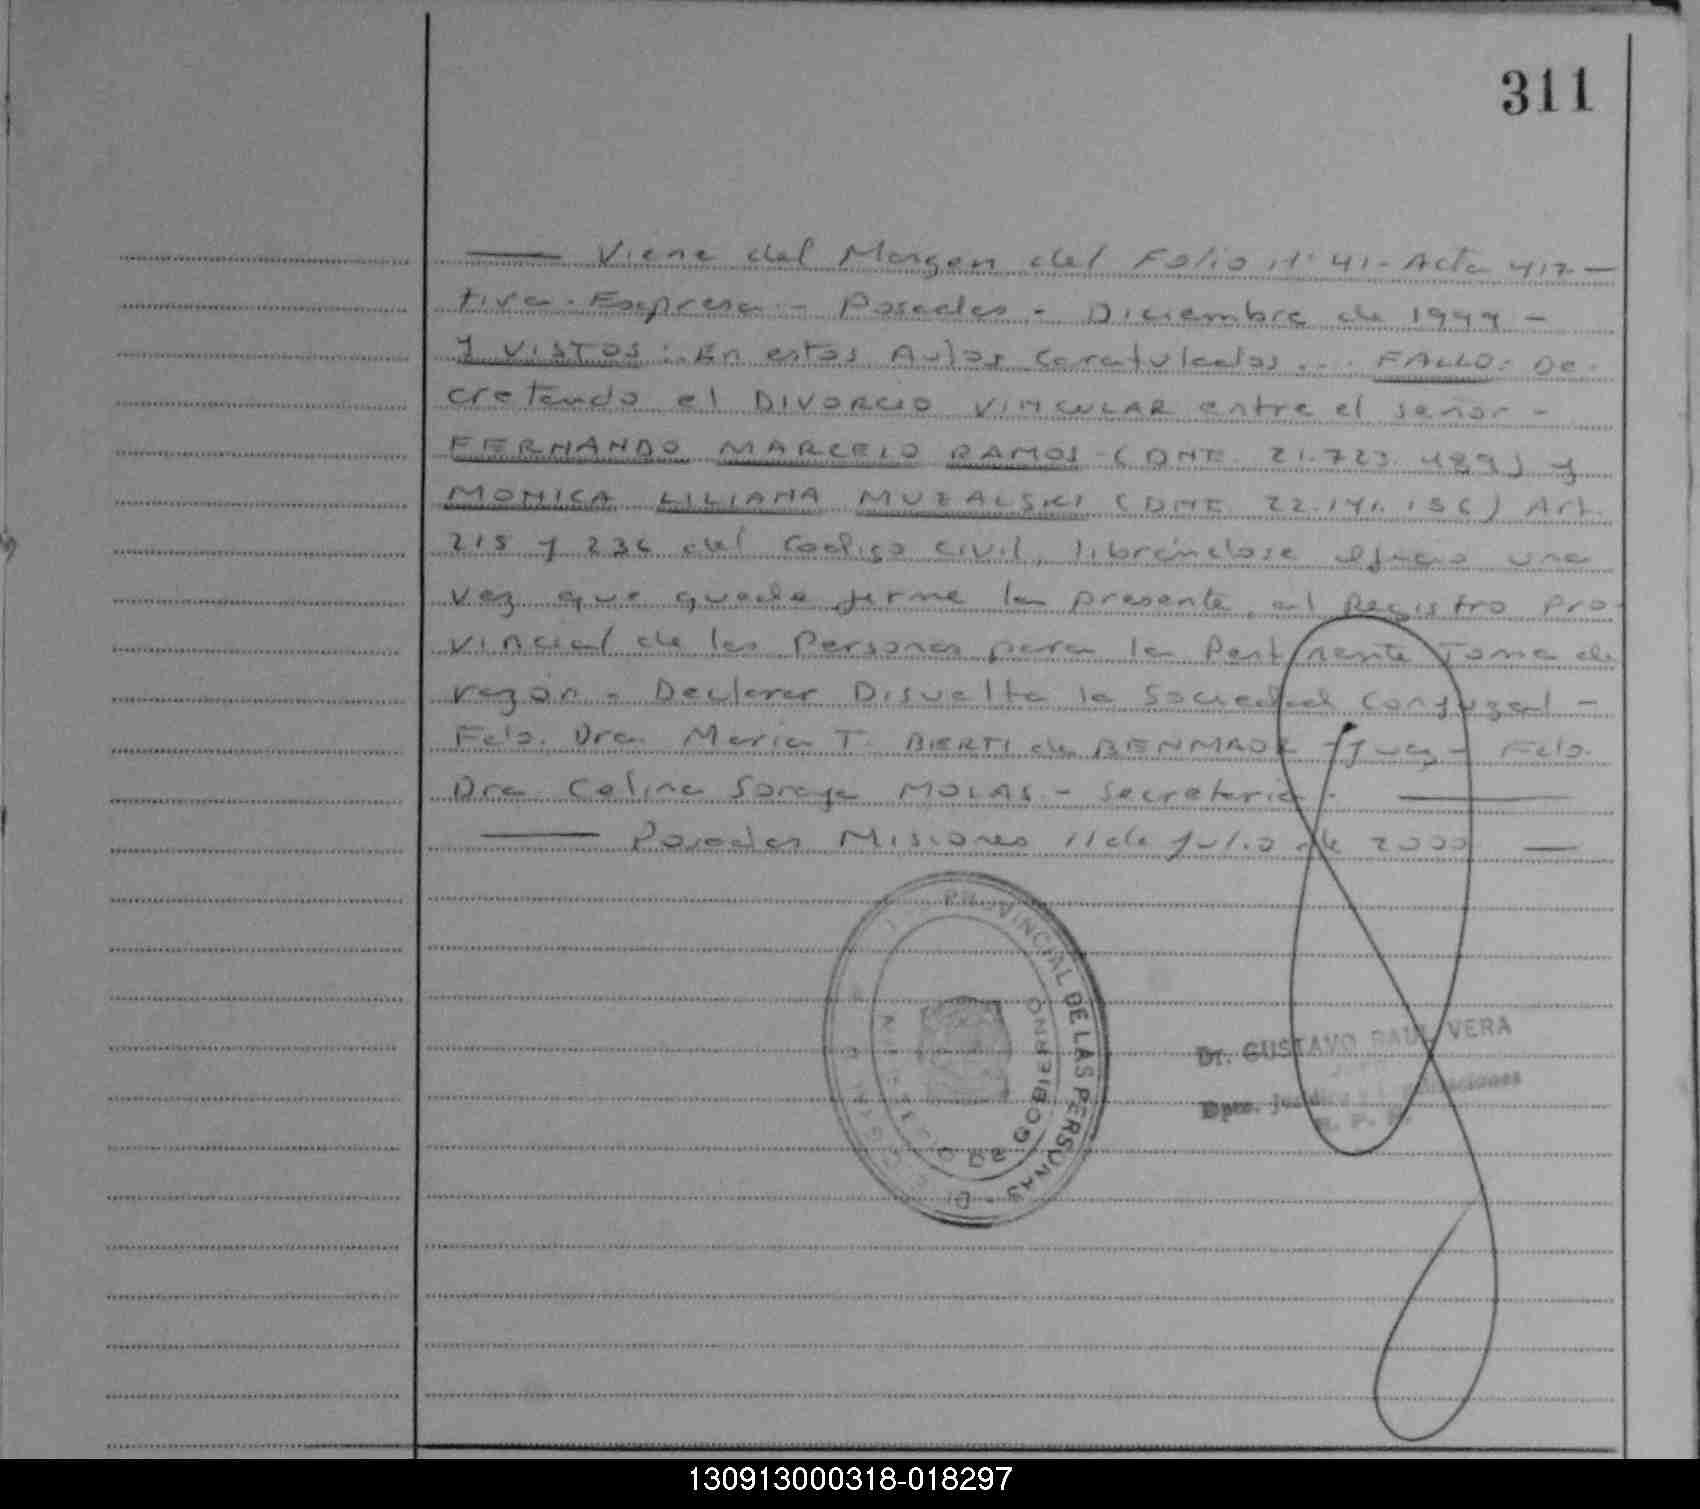 311
Viene del Margen del Folio Nº 41 - Acta 417 -
tiva - Expresa - Posadas - Diciembre de 1999 -
Y VISTOS: En estos Autos Caratulados ... FALLO: De-
cretando el DIVORCIO VINCULAR entre el señor -
FERNANDO MARCELO RAMOS (DNI. 21.723.489) y
MONICA LILIANA MUZALSKI (DNI 22.141.156) Art.
215 y 236 del Codigo Civil, librándose oficio una
vez que quede firme la presente, al Registro Pro-
vincial de las Personas para la Pertinente Toma de
razón. Declarar Disuelta la Sociedad Conyugal -
Fdo. Dra. Maria T. BERTI de BENMAOR - Juez - Fdo.
Dra Celina Soraya MOLAS - Secretaria -
Posadas Misiones 11 de Julio de 2000
PROVINCIAL DE LAS PERSONAS
MINISTERIO DE GOBIERNO
Dr. GUSTAVO RAUL VERA
Dpto.
R. P. P.
130913000318-018297